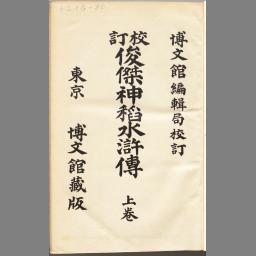 博文館編輯局校訂
校訂俊傑神稻水滸傳
上巻
東京 博文館藏版